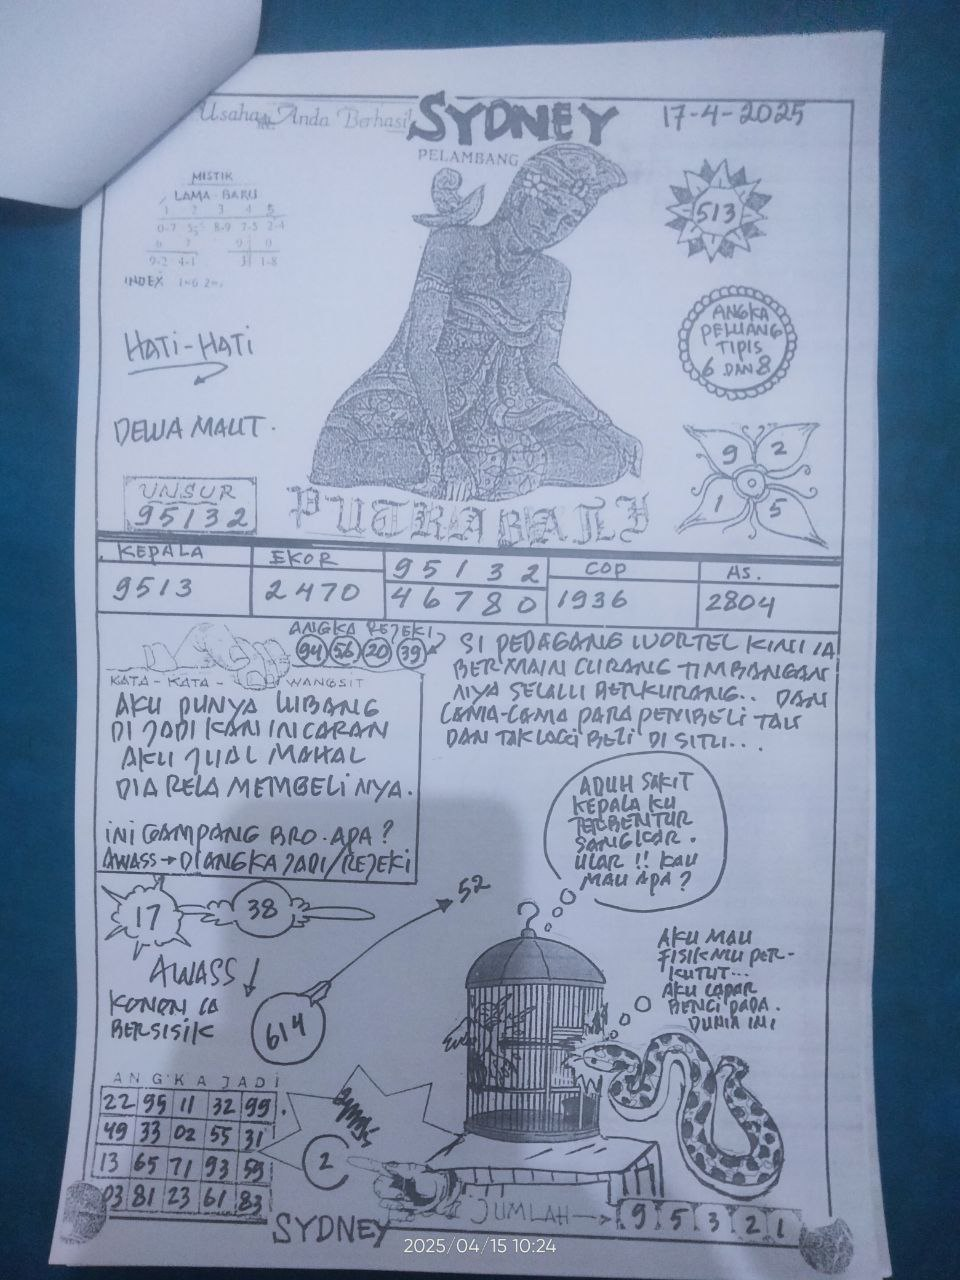 Usaha Anda Berhasil
SYDNEY
17-4-2025
PELAMBANG
MISTIK
LAMA - BARU
1 2 3 4 5
0-7 8-9 7-5 2-4
6 7 9 0
9-2 4-1 3 1-8
INDEX
513
HATI-HATI
ANGKA
PELUANG
TIPIS
6 DAN 8
DEWA MAUT.
9 2
1 5
UNSUR
95132
PUTRA BALI
KEPALA
9513
EKOR
2470
95132
46780
COP
1936
AS.
2804
ANGKA REJEKI
94 56 20 39
KATA - KATA - WANGSIT
AKU PUNYA LUBANG
DI JADI KAN INCARAN
AKU JUAL MAHAL
DIA RELA MEMBELI NYA.
INI GAMPANG BRO. APA?
AWASS → DI ANGKA JADI/REJEKI
SI PEDAGANG WORTEL KINI IA
BERMAIN CURANG TIMBANGAN
NYA SELALU BERKURANG.. DAN
LAMA-LAMA PARA PEMBELI TAU
DAN TAK LAGI BELI DI SITU...
ADUH SAKIT
KEPALA KU
TERBENTUR
SANGKAR.
ULAR !! KAU
MAU APA?
17
38
52
AWASS
KONON IA
BERSISIK
614
AKU MAU
FISIK MU PER-
KUTUT...
AKU LAPAR
BENCI PADA.
DUNIA INI
ANGKA JADI
22 95 11 32 99
49 33 02 55 31
13 65 71 93 59
03 81 23 61 83
2
JUMLAH → 9 5 3 2 1
SYDNEY
2025/04/15 10:24